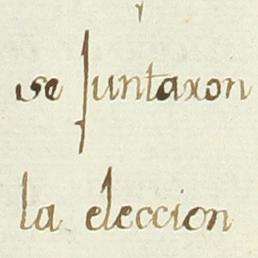 se juntaron
la eleccion